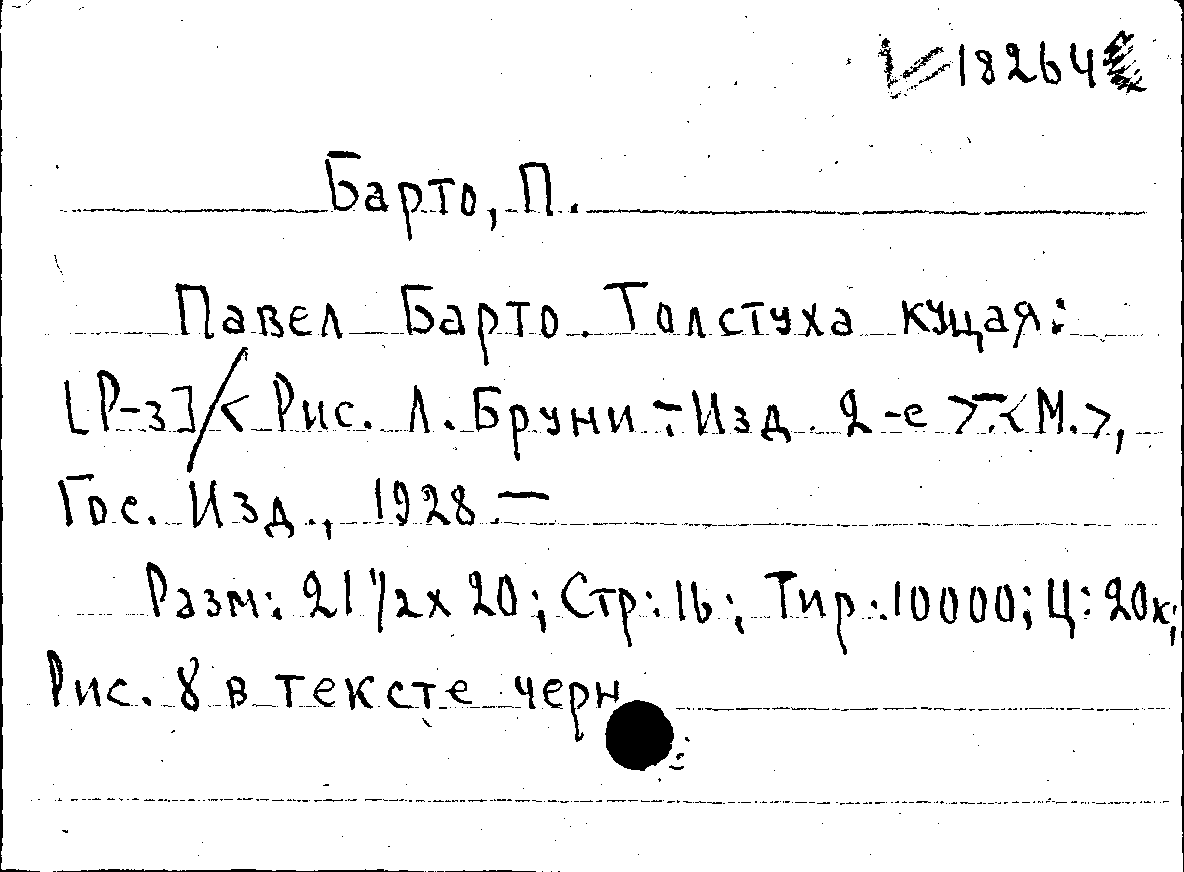 18264
Барто, П.
Павел Барто. Толстуха куцая:
[Р-з] / < Рис. Л. Бруни - Изд. 2-е > - < М. >,
Гос. Изд., 1928. —
Разм: 21 1/2 х 20; Стр: 16; Тир: 10000; Ц: 20к;
Рис. 8 в тексте черн